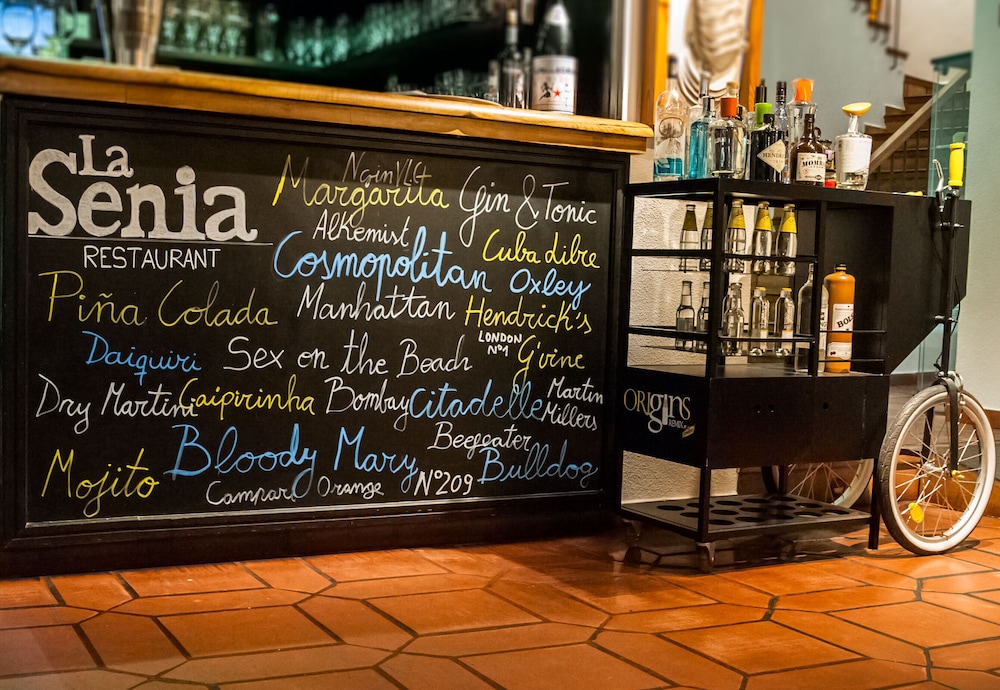 La
Senia
RESTAURANT
NginVLG
Margarita
Gin & Tonic
Alkemist
Cuba dibre
Cosmopolitan
Oxley
Piña Colada
Manhattan
Hendrick's
LONDON
Nº1
Daiquiri
Sex on the Beach
G'vine
Dry Martini
Caipirinha
Bombay
Citadelle
Martin
Millers
Beefeater
Mojito
Bloody Mary
Bulldog
Campari Orange
Nº209
HENDRICK'S
MOM
BOLS
ORIGINS
REMIX